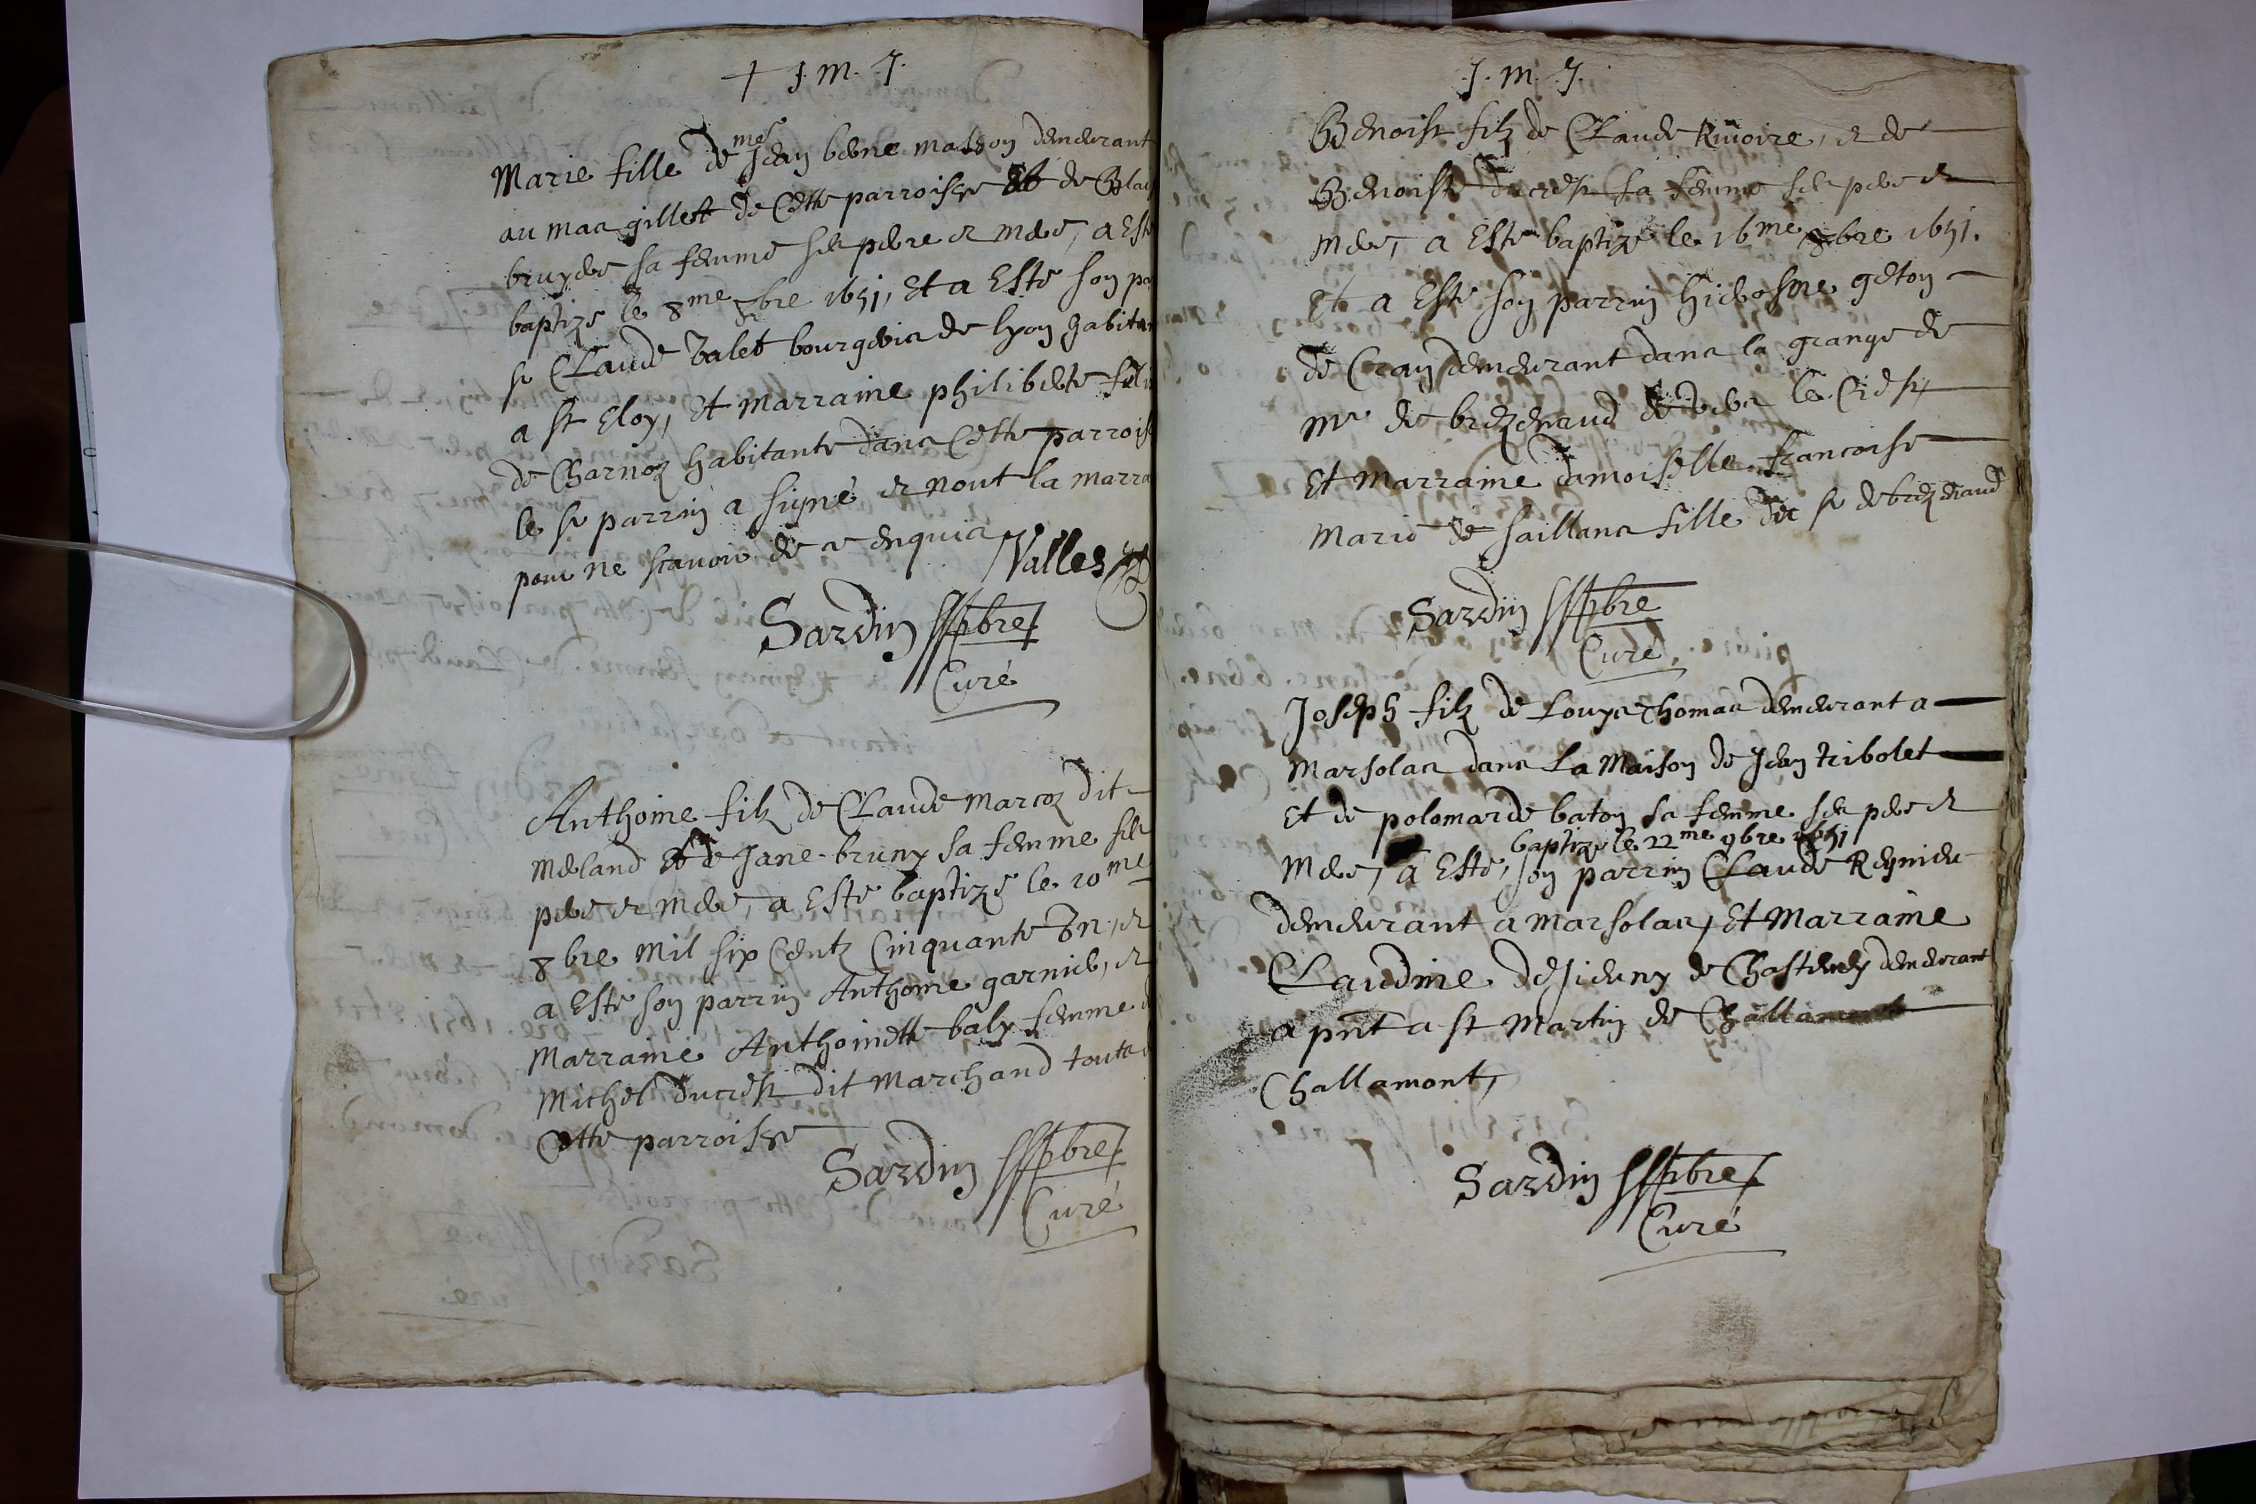 + J. m. J.
Marie fille de mes Jean berne masson demeurant
au mas gillet de Cette parroisse et de Blai
bruyere sa femme ses pere et mere, a Esté
baptize le 8me 8bre 1651, Et a Esté son pa
sr Claude Valet bourgeois de lyon habita
a st Eloy, Et marraine philiberte fil
de Charnoz habitante dans Cette parrois
le sr parrin a signé et nont la marra
pour ne scavoir de ce enquis Valles
Sardin pbre
Curé
Anthoine filz de Claude marcoz dit
merland et de Jane bruny sa femme ses
pere et mere, a Esté baptizé le 10me
8bre mil six Centz Cinquante Vn, et
a Esté son parrin Anthoine garnier, et
marraine Anthoinette baly femme d
Michel ducrest dit marchand touts d
Cette parroisse
Sardin pbre
Curé
J. m. J.
Benoist filz de Claude Riuoire, et de
Benoiste ducrest sa femme ses pere et
mere, a Esté baptizé le 16me 8bre 1651.
Et a Esté son parrin hierosme geton
de Cran demeurant dans la grange de
mr de brezenaud le Crest,
Et marraine damoiselle francoise
marie de saillans fille du sr de brezenaud
Sardin pbre
Curé
Joseph filz de Louys thomas demeurant a
marsolas dans La maison de Jean tribolet
Et de polomarde baton sa femme ses pere et
baptizé le 22me 9bre 1651
mere, a Esté, son parrin Claude Reynier
demeurant a marsolas, Et marraine
Claudine de Chastenay demeurant
a pnt a st martin de Challamont
Challamont,
Sardin pbre
Curé